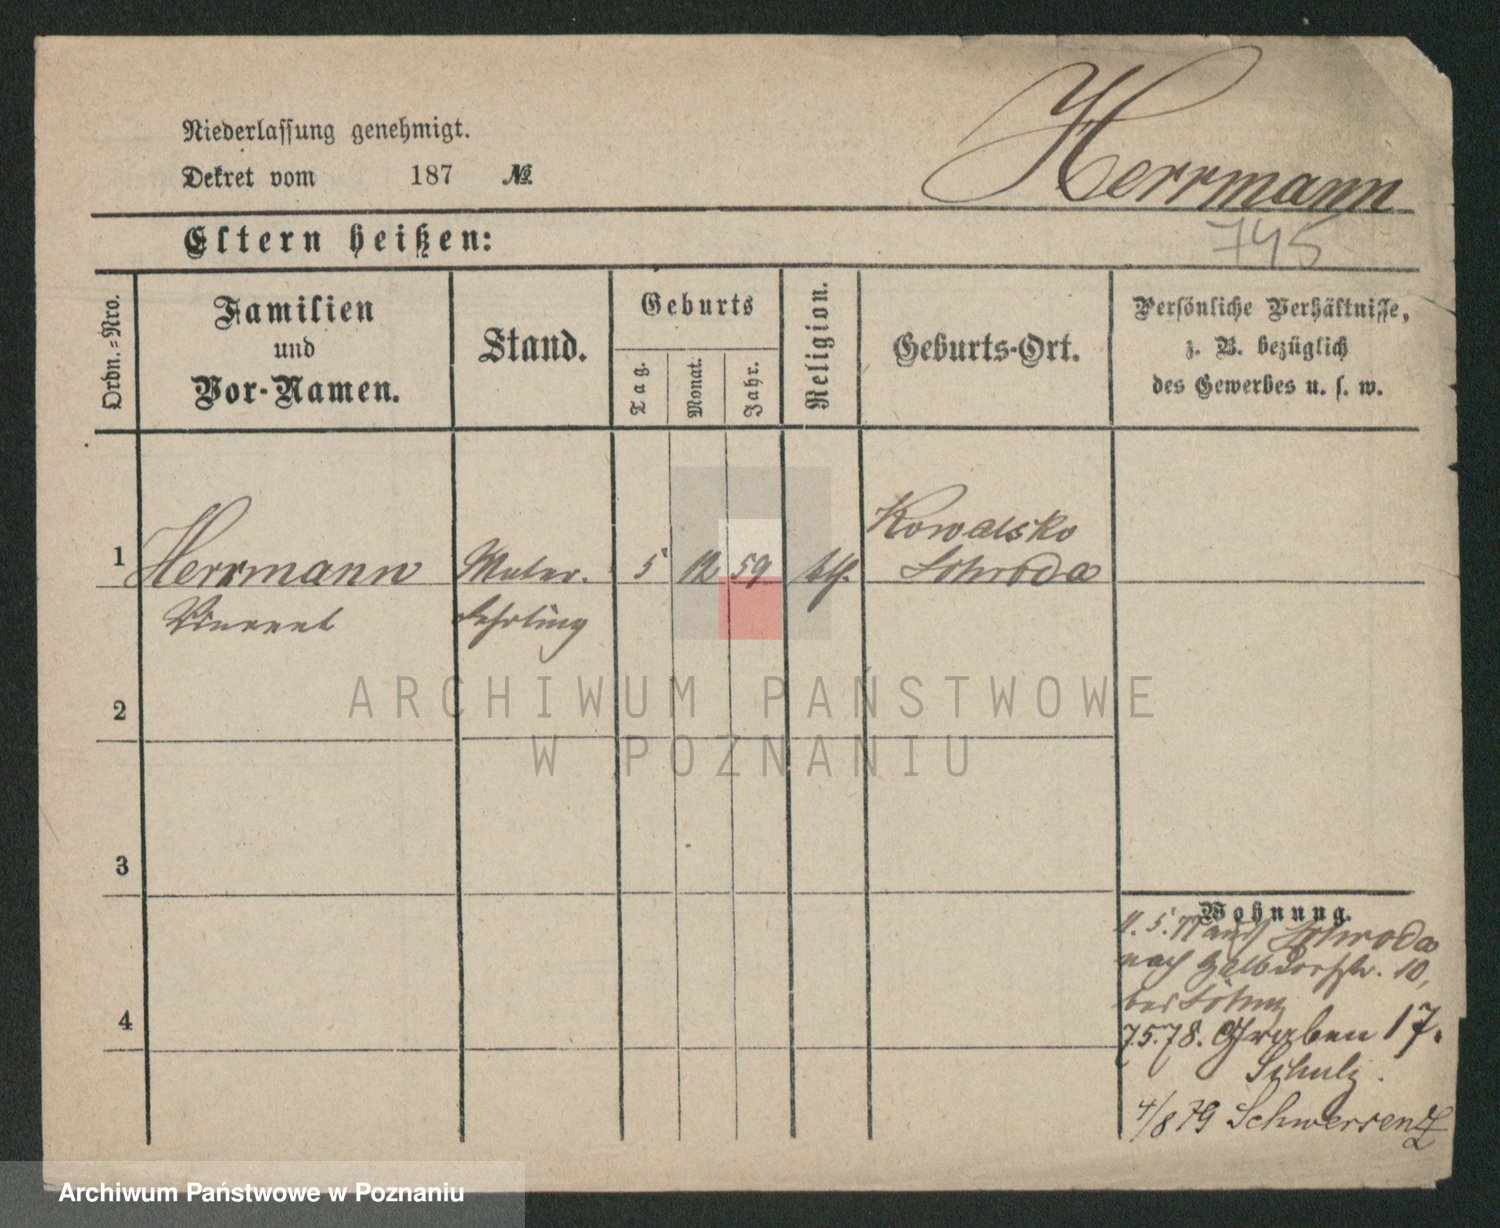 Herrmann
745
Niederlassung genehmigt.
Dekret vom 187 №
Eltern heißen:
Ordn.=Nro.
Familien
und
Vor-Namen.
Stand.
Geburts
Tag.
Monat.
Jahr.
Religion.
Geburts-Ort.
Persönliche Verhältnisse,
z. B. bezüglich
des Gewerbes u. s. w.
1 Herrmann
Vincent
Maler.
Lehrling
5 12 59 kth.
Kowalsko
Schroda
2
3
4
Wohnung.
11. 5. 77 aus Schroda
nach Halbdorfstr. 10,
bei
7.5.78. Graben 17.
Schulz.
4/8 79 Schwersenz
ARCHIWUM PAŃSTWOWE
W POZNANIU
Archiwum Państwowe w Poznaniu